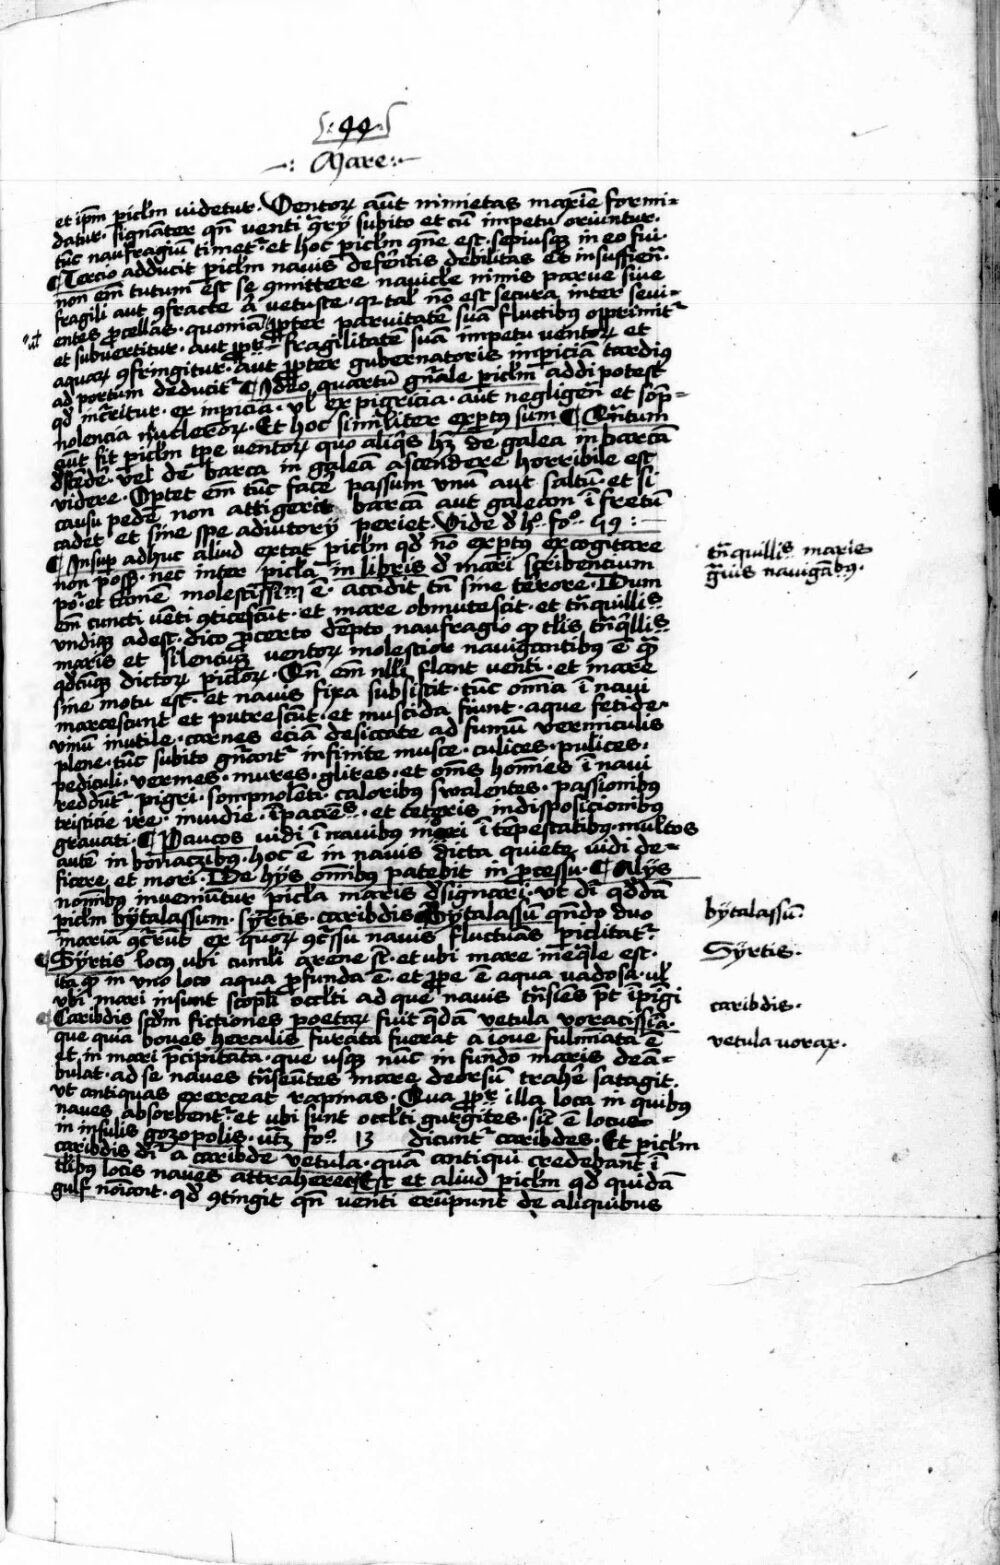 44
Mare
et ipm piclm videtur. Ventoꝝ aūt nimietas maxīe formi=
datur. signāter qn̄ venti ꝯrrÿ subito et cū impetu oriuntur.
tūc naufragiū timetr. et hoc piclm qn̄e est. sepiusqꝫ in eo fui.
¶ Tercio adducit piclm navis deferētis debilitas et insufficiē.
non em̄ tutum est se ꝯmittere navicle nimis parve sive
fragili aut ꝯfracte aͧ vetuste. qr talʼ no est secura inter sevi=
entes ꝓcellas. quoniā ꝓpter parvitatē suā fluctibus opprimitr
et subvertitur. aut ꝓptʼ fragilitatē suā impetu ventoꝝ et
aquaꝝ ꝯfringitur. aūt ꝓpter gubernatoris impiciā tardiꝰ
ad portum deducitr ¶ Ideo quartū gn̄ale piclm addi potest
qd̓ incʼritur. ex impicia. vl̓ ex pigricia. aut negligen̄ et sōp=
nolencia naucleroꝝ. Et hoc similiter exptꝰ sum ¶ Quītum
aūt fit piclm tpe ventoꝝ quo aliqͥs hꝫ de galea in barcā
d̓scedē. vel de barca in galeā ascendere horribile est
videre. Optet em̄ tūc facē passum unū aut saltū. et si
causu pedē non attigerit barcā aut galeam ī fretū
cadet et sine spe adiutorÿ periet Vide d̓ hͦ. foͦ. 49 :
¶ Insup adhuc aliud extat piclm qd̓ nō exptꝰ excogitare
non possꝫ. nec inter picla in libris d̓ mari scribencium
poͬ. et tamē molestissim̄ ē. accidit tn̄ sine terrore. Dum
em̄ cuncti vēti ꝯticescūt. et mare obmutescit. et tn̄quillis
undiqꝫ adest. dico ꝓcerto dēpto naufragio qꝫ tlis tn̄qͥllis
maris et silenciūꝫ ventoꝝ molestior navigantibus ē qꝫ
qd̓cūqꝫ dictoꝝ picloꝝ. Qn̄ em̄ nlli flant venti. et mare
sine motu est. et navis fixa subsistit. tūc om̄ia ī navi
marcescunt et putrescūt. et muscida fiunt. aque fetide.
vinū inutile. carnes eciā desiccate ad fumū vermiculis
plene. tūc subito gn̄antr infinite musce. culices. pulices.
pediculi. vermes. mures. glires. et oms homīes ī navi
reddūtr pigri. sompnolēti. caloribus swalentes. passionibus
tristicie ire. invidie. īpaciēs. et ceteris indisposicionibus
gravati. ¶ Paucos vidi ī navibus mori ī tēpestatibꝰ. multos
autē in bonaczibꝰ. hoc ē in navis dicta quiete vidi de=
ficere et mori. De hÿs om̄ibus patebit in ꝓcessu. ¶ Alÿs
nomībꝰ inveniūtur picla maris d̓signari. ut dr̄ qd̓dā
piclm bÿtalassum. sÿrtis. caribdis ¶ Bÿtalassū qn̄do duo
maria ꝯcʼrūt ex quoꝝ ꝯcʼsu navis fluctuās piclitatr.
¶ Sÿrtis locꝰ ubi cumli arene st̄. et ubi mare ineqͣle est.
ita qꝫ in uno loco aqua ꝓfunda ē. et ꝓpe ē aqua vadosa. vl̓
ubi mari insunt scopli occlti ad que navis tn̄siēs pōt īpīgi
¶ Caribdis scd̓m fictiones poetaꝝ fuit qd̓ā vetula voracissīa.
que quia boves herculis furata fuerat a iove fulminata ē
et in mari p̄cipitata. que usqꝫ nūc in fundo maris deā=
bulat. ad se naves tn̄seūtes mare deorsū trahē satagit.
ut antiquas exerceat rapinas. Qua ꝓptʼ illa loca in quibꝰ
naves absorbentr et ubi sunt occlti gurgites. sicʼ ē locus
in insulis gozopolis. utꝫ foͦ. 13 dicuntr caribdes. Et piclm
caribdis dr̄ a caribde vetula. quā antiqui credebant ī
tlibus locis naves attrahere ¶ Est et aliud piclm qd̓ quidā
gulf noīant. qd̓ ꝯtingit qn̄ venti erūpunt de aliquibus
tn̄quillis maris
gͣvis navigātibꝰ.
bÿtalassū.
Sÿrtis.
caribdis.
vetula vorax.